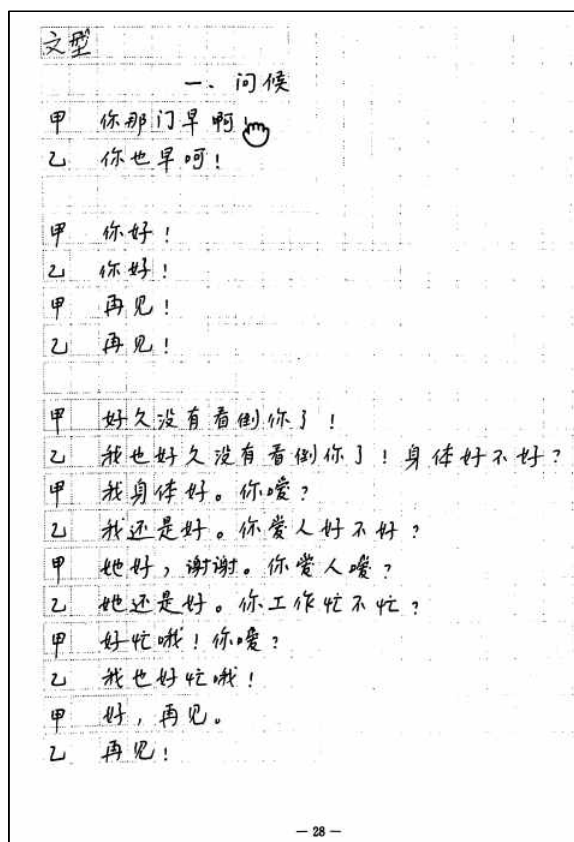 文型
一、问候
甲 你那门早啊!
乙 你也早呵!
甲 你好!
乙 你好!
甲 再见!
乙 再见!
甲 好久没有看倒你了!
乙 我也好久没有看倒你了!身体好不好?
甲 我身体好。你嗳?
乙 我还是好。你爱人好不好?
甲 她好,谢谢。你爱人嗳?
乙 她还是好。你工作忙不忙?
甲 好忙哦!你嗳?
乙 我也好忙哦!
甲 好,再见。
乙 再见!
— 28 —